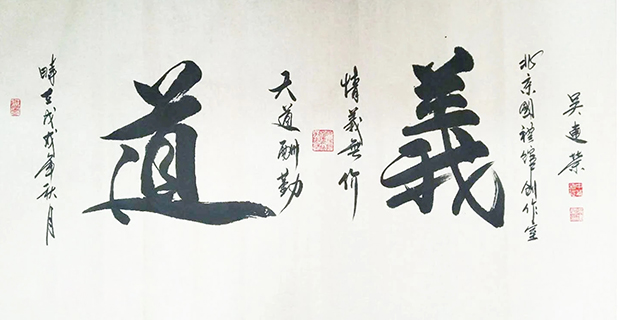 吴建荣
北京國禮館创作室
義
情義無价
天道酬勤
道
時在戊戌年秋月